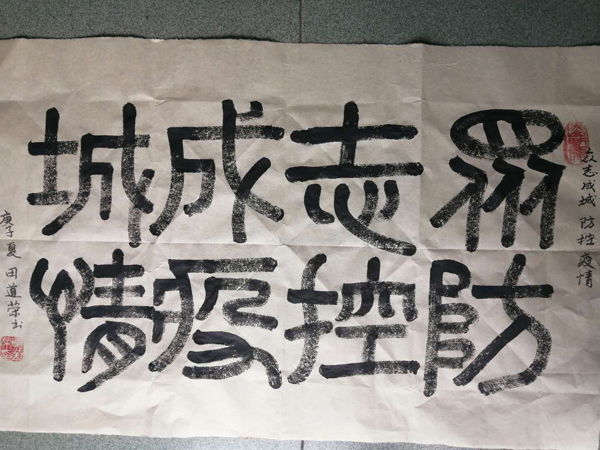 眾志成城
防控疫情
众志成城 防控疫情
庚子夏 田道荣书